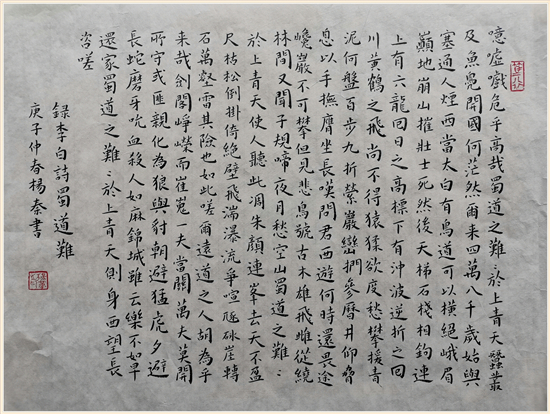 噫嘘戲危乎高哉蜀道之難〻於上青天蠶叢
及魚鳧開國何茫然爾来四萬八千歲始與
塞通人煙西當太白有鳥道可以橫絕峨眉
巔地崩山摧壯士死然後天梯石棧相鉤連
上有六龍回日之高標下有沖波逆折之回
川黃鶴之飛尚不得猿猱欲度愁攀援青
泥何盤百步九折縈巖巒捫參歷井仰脅
息以手撫膺坐長嘆問君西遊何時還畏途
巉巖不可攀但見悲鳥號古木雄飛雌從繞
林間又聞子規啼夜月愁空山蜀道之難〻
於上青天使人聽此凋朱顏連峯去天不盈
尺枯松倒掛倚絕壁飛湍瀑流爭喧豗砯崖轉
石萬壑雷其險也如此嗟爾遠道之人胡為乎
来哉劍閣崢嶸而崔嵬一夫當關萬夫莫開
所守或匪親化為狼與豺朝避猛虎夕避
長蛇磨牙吮血殺人如麻錦城雖云樂不如早
還家蜀道之難〻於上青天側身西望長
咨嗟
錄李白詩蜀道難
庚子仲春楊秦書